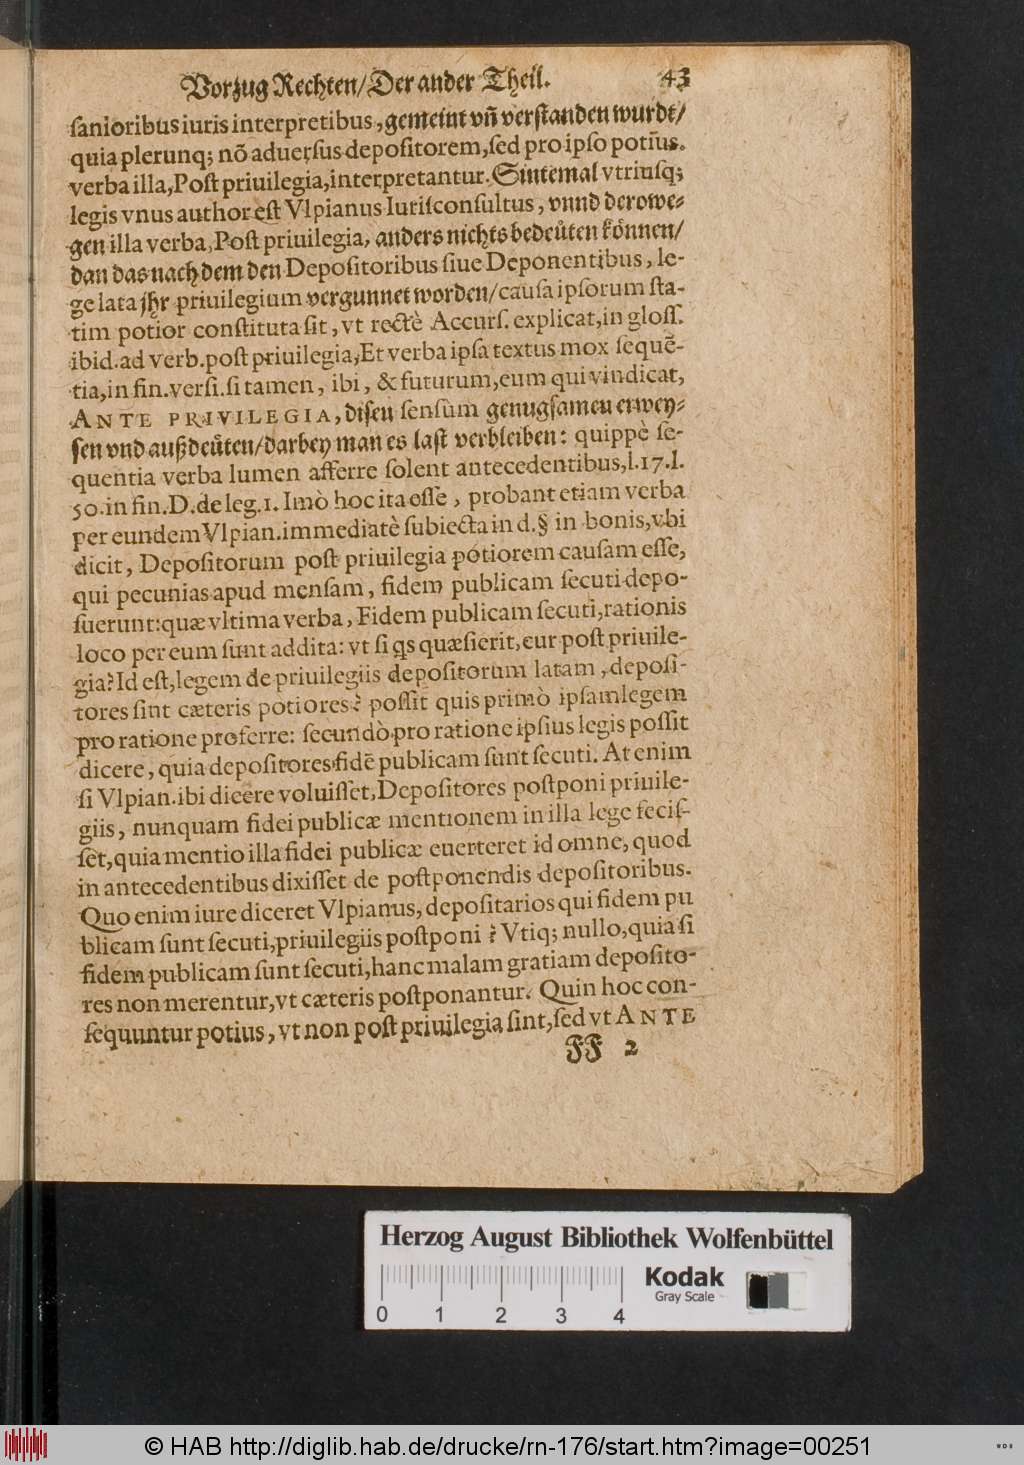 Vorzug Rechten/Der ander Theil. 43
ſanioribus iuris interpretibus, gemeint vñ verſtanden wurdt/
quia plerunq; nõ aduerſus depoſitorem, ſed pro ipſo potiũs.
verba illa, Poſt priuilegia, interpretantur. Sintemal vtriuſq;
legis vnus author eſt Vlpianus Iuriſconſultus, vnnd derowe-
gen illa verba, Poſt priuilegia, anders nichts bedeüten können/
dan das nach dem den Depoſitoribus ſiue Deponentibus, le-
ge lata jhr priuilegium vergunnet worden/ cauſa ipſorum ſta-
tim potior conſtituta ſit, vt rectè Accurſ. explicat, in gloſſ.
ibid. ad verb. poſt priuilegia, Et verba ipſa textus mox ſequẽ-
tia, in fin. verſi. ſi tamen, ibi, & futurum, eum qui vindicat,
ANTE PRIVILEGIA, diſen ſenſum genugſamen erwey-
ſen vnd außdeüten/ darbey man es laſt verbleiben: quippè ſe-
quentia verba lumen afferre ſolent antecedentibus, l. 17. l.
50. in fin. D. de leg. 1. Imò hoc ita eſſe, probant etiam verba
per eundem Vlpian. immediatè ſubiecta in d. § in bonis, vbi
dicit, Depoſitorum poſt priuilegia potiorem cauſam eſſe,
qui pecunias apud menſam, fidem publicam ſecuti depo-
ſuerunt: quæ vltima verba, Fidem publicam ſecuti, rationis
loco per eum ſunt addita: vt ſi qs quæſierit, cur poſt priuile-
gia? Id eſt, legem de priuilegiis depoſitorum latam, depoſi-
tores ſint cæteris potiores? poſſit quis primò ipſam legem
pro ratione proferre: ſecundò pro ratione ipſius legis poſſit
dicere, quia depoſitores fidẽ publicam ſunt ſecuti. At enim
ſi Vlpian. ibi dicere voluiſſet, Depoſitores poſtponi priuile-
giis, nunquam fidei publicæ mentionem in illa lege feciſ-
ſet, quia mentio illa fidei publicæ euerteret id omne, quod
in antecedentibus dixiſſet de poſtponendis depoſitoribus.
Quo enim iure diceret Vlpianus, depoſitarios qui fidem pu
blicam ſunt ſecuti, priuilegiis poſtponi? Vtiq; nullo, quia ſi
fidem publicam ſunt ſecuti, hanc malam gratiam depoſito-
res non merentur, vt cæteris poſtponantur. Quin hoc con-
ſequuntur potius, vt non poſt priuilegia ſint, ſed vt ANTE
FF 2
Herzog August Bibliothek Wolfenbüttel
Kodak
Gray Scale
0 1 2 3 4
© HAB http://diglib.hab.de/drucke/rn-176/start.htm?image=00251